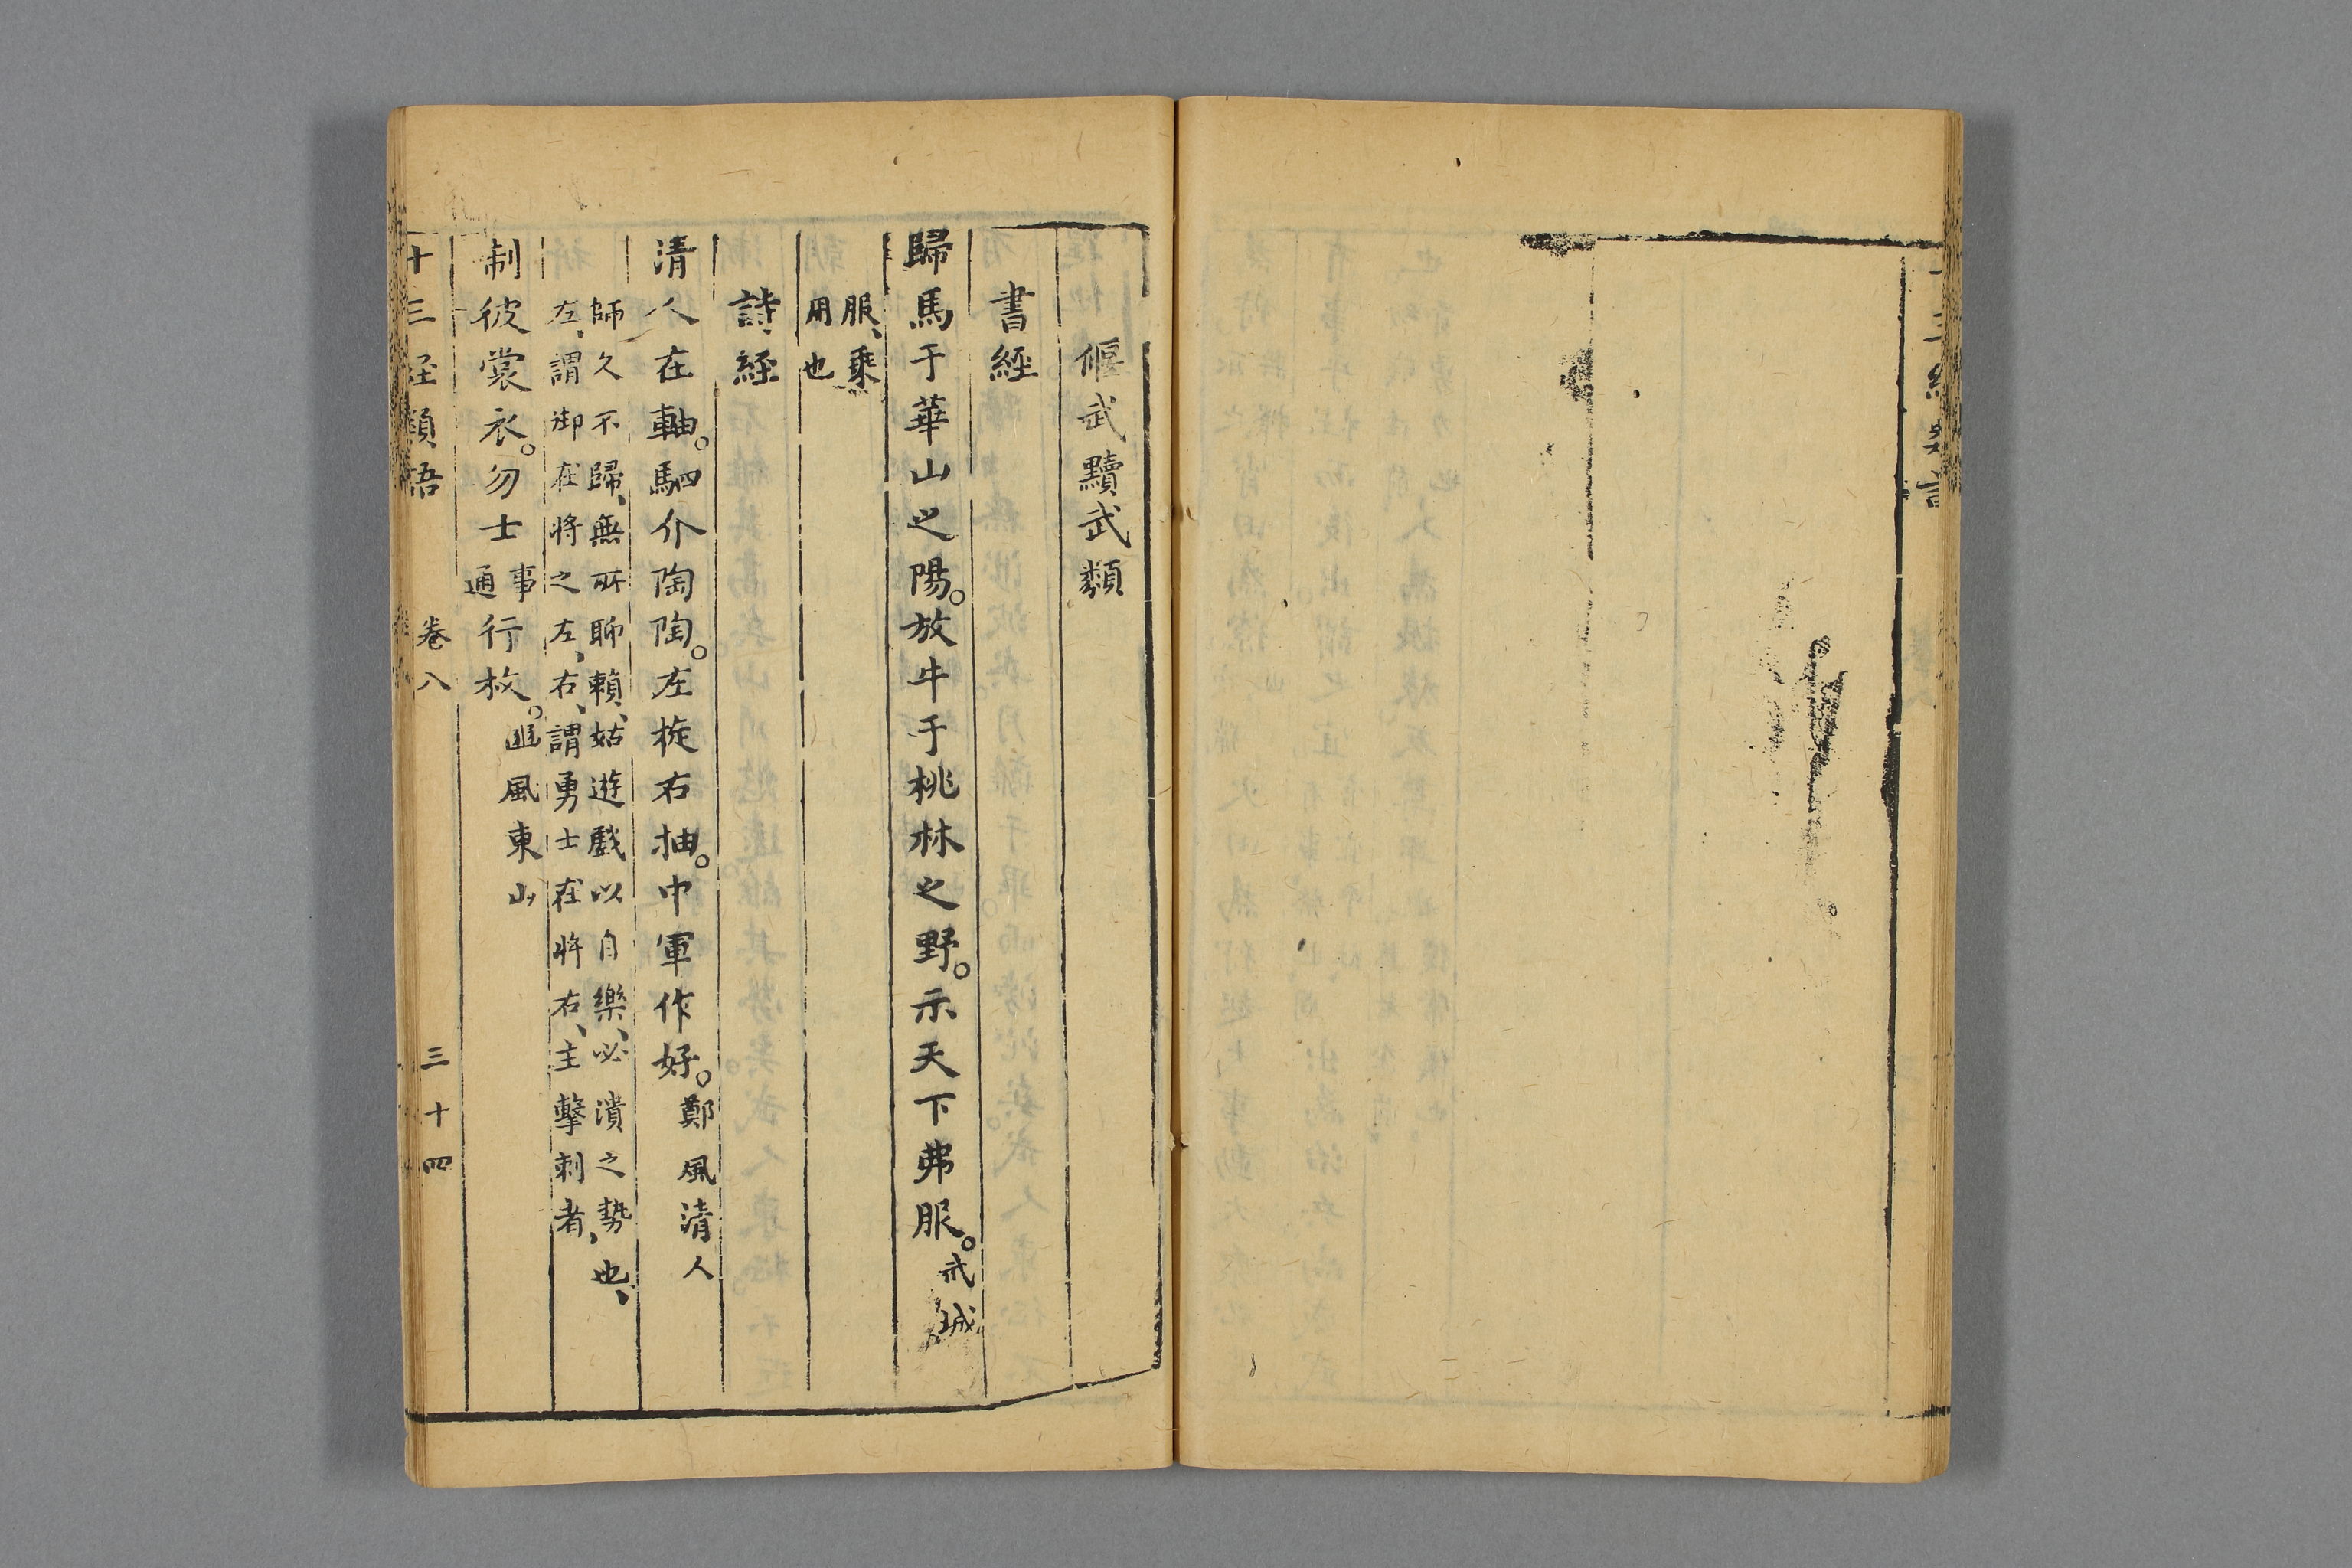 偃武黷武類
書經
歸馬于華山之陽。放牛于桃林之野。示天下弗服。武城
服、乘
用也
詩經
清人在軸。駟介陶陶。左旋右抽。中軍作好。鄭風清人
師久不歸、無所聊賴、姑遊戲以自樂、必潰之勢也、
左、謂御在將之左、右、謂勇士在將右、主擊刺者、
制彼裳衣。勿士事通行枚。豳風東山
十三經類語 卷八 三十四